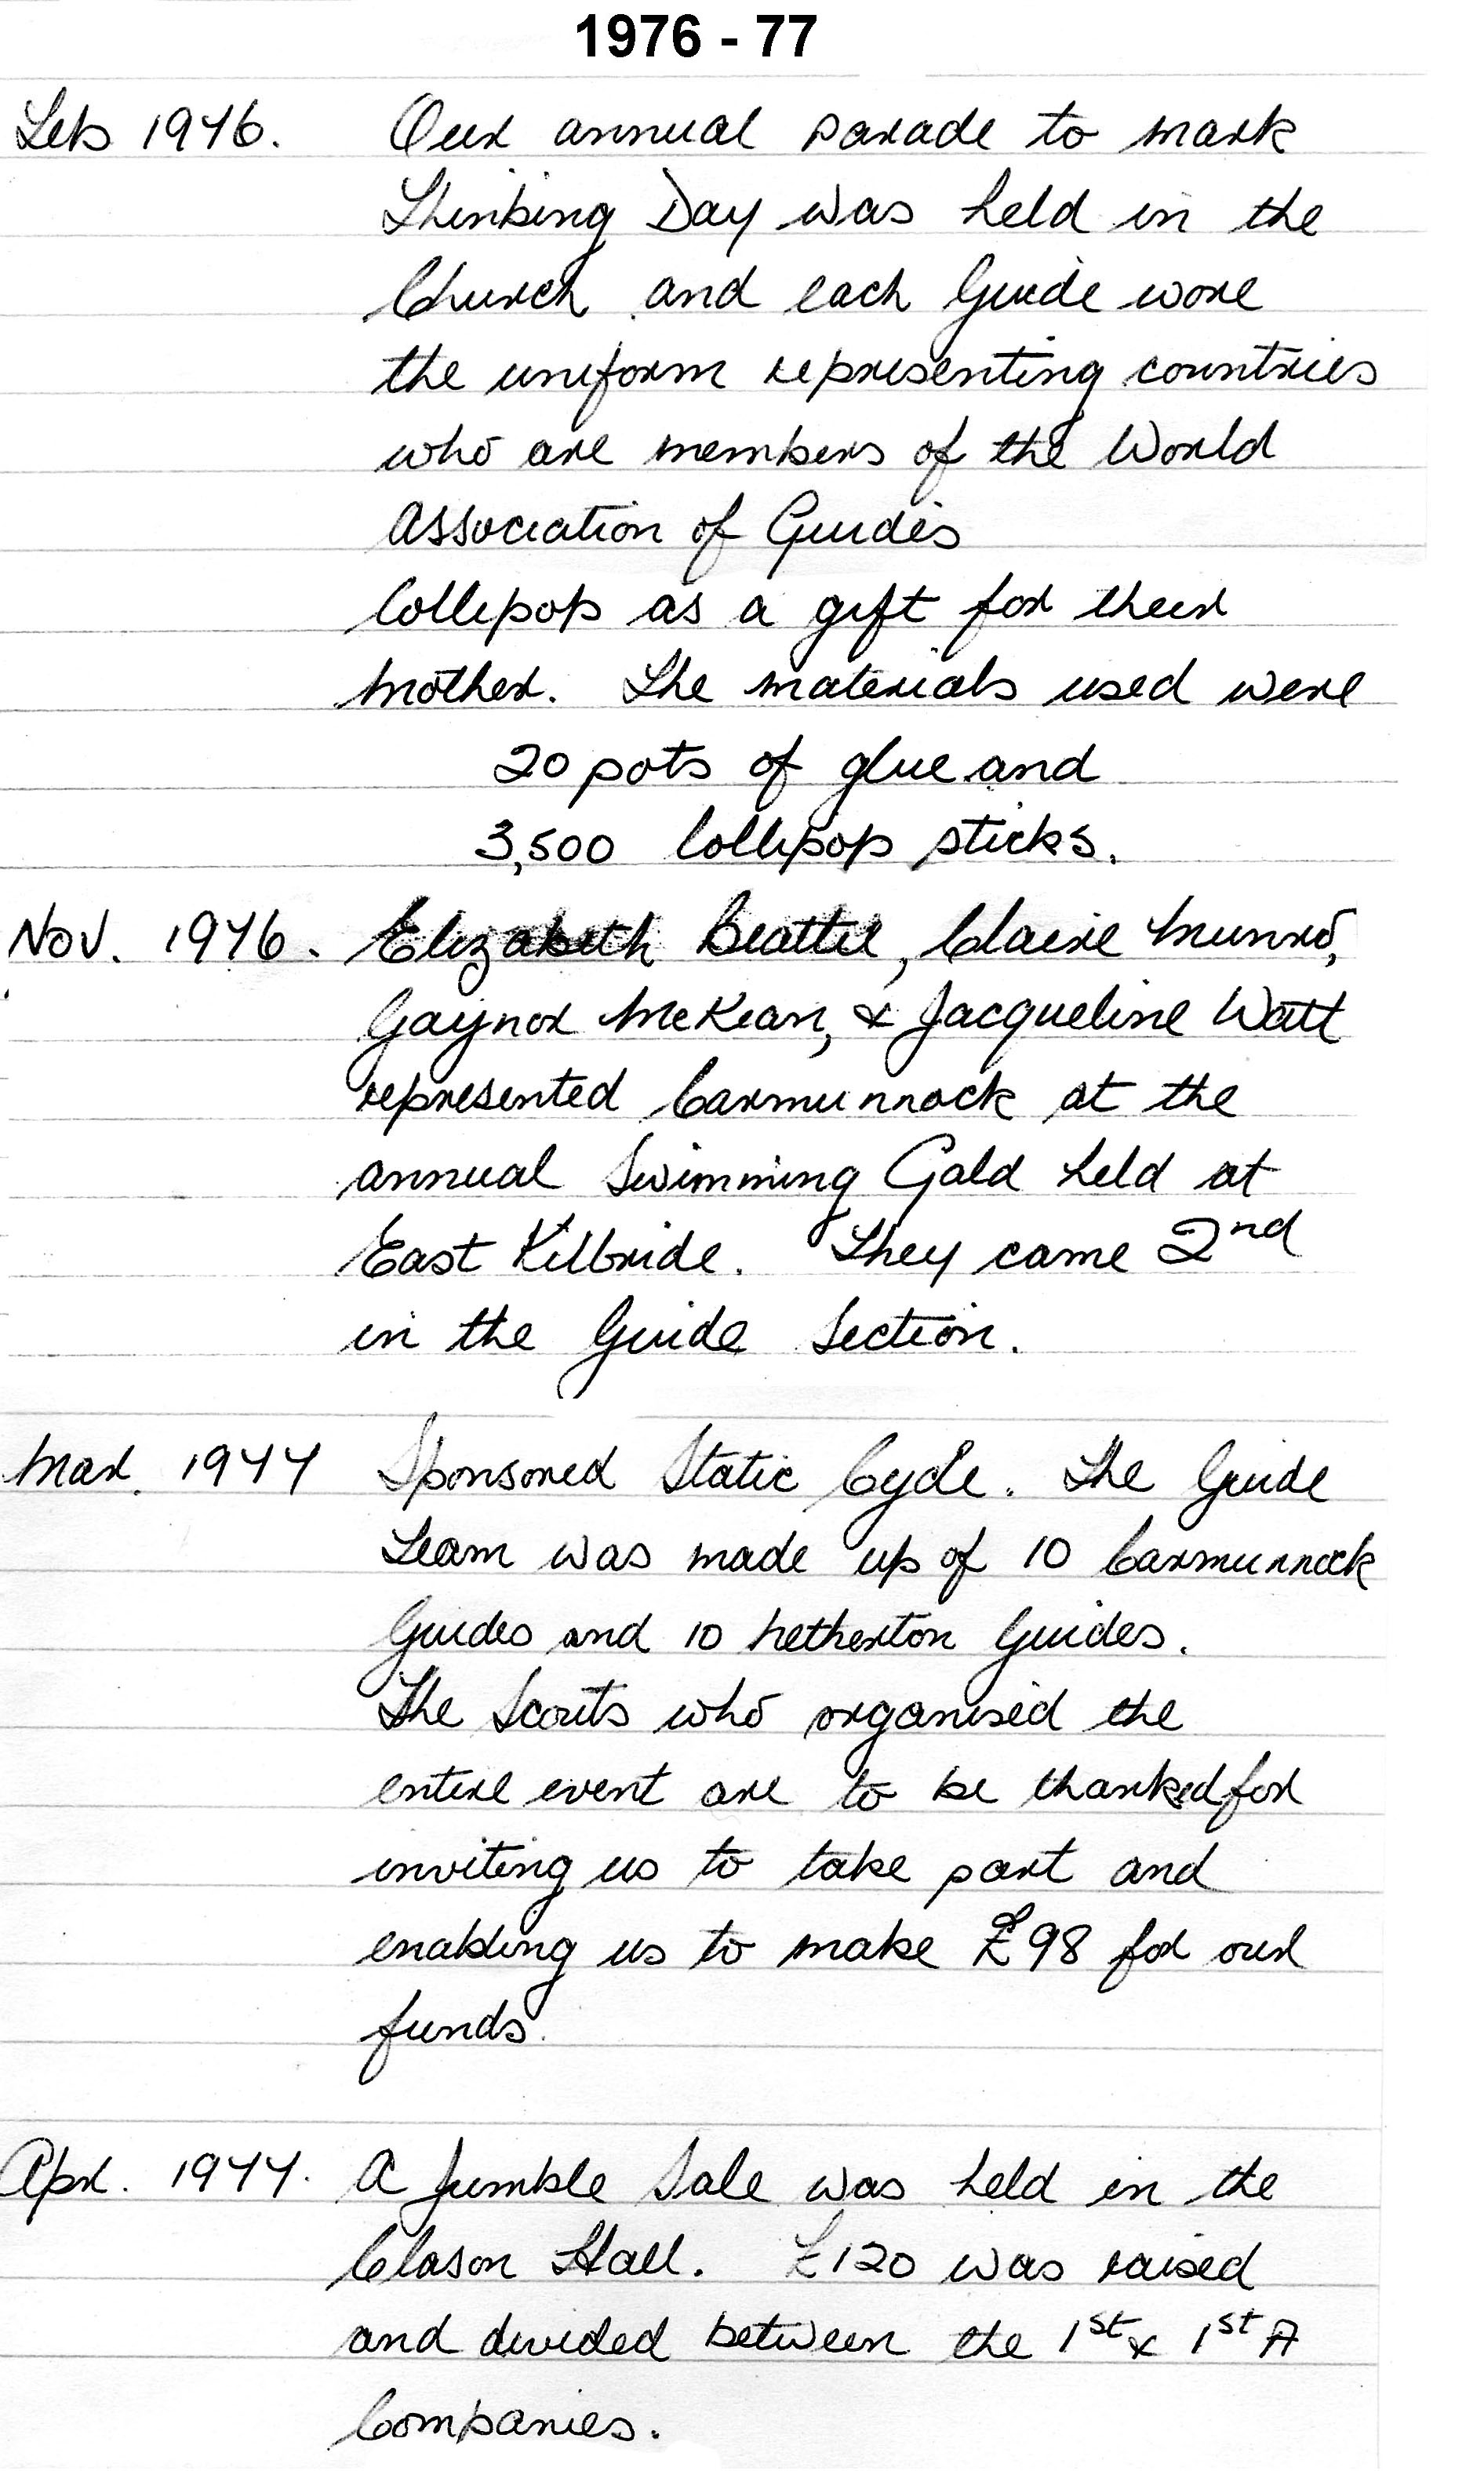 1976 - 77
Feb 1976. Our annual parade to mark
Thinking Day was held in the
Church and each Guide wore
the uniform representing countries
who are members of the World
Association of Guides
Lollipop as a gift for their
Mother. The materials used were
20 pots of glue and
3,500 lollipop sticks.
Nov. 1976. Elizabeth Beattie, Claire Munro,
Gaynor McKean, & Jacqueline Watt
represented Carmunnock at the
annual Swimming Gala held at
East Kilbride. They came 2nd
in the Guide Section.
Mar. 1977 Sponsored Static Cycle. The Guide
Team was made up of 10 Carmunnock
Guides and 10 Netherton Guides.
The Scouts who organised the
entire event are to be thanked for
inviting us to take part and
enabling us to make £98 for our
funds.
Apr. 1977. A Jumble Sale was held in the
Clason Hall. £120 was raised
and divided between the 1st & 1st A
Companies.